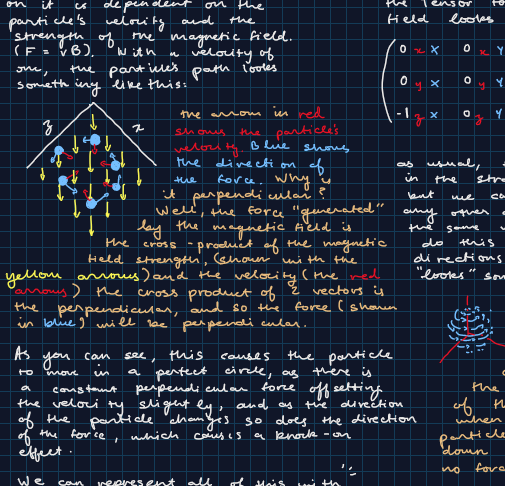 on it is dependent on the
particle's velocity and the
strength of the magnetic field.
(F = vB). With a velocity of
one, the particle's path looks
something like this:
z x
the arrow in red
shows the particle's
velocity. Blue shows
the direction of
the force. Why is
it perpendicular?
Well, the force "generated"
by the magnetic field is
the cross-product of the magnetic
field strength, (shown with the
yellow arrows) and the velocity (the red
arrows) the cross product of 2 vectors is
the perpendicular, and so the force (shown
in blue) will be perpendicular.
As you can see, this causes the particle
to move in a perfect circle, as there is
a constant perpendicular force offsetting
the velocity slightly, and as the direction
of the particle changes so does the direction
of the force, which causes a knock-on
effect.
We can represent all of this with
the Tensor
field looks
0 x x 0 x y
0 y x 0 y y
-1 z x 0 z y
as usual,
in the
but we
any other
the same
do this
directions
"looks"
the
of the
when
particle
down
no